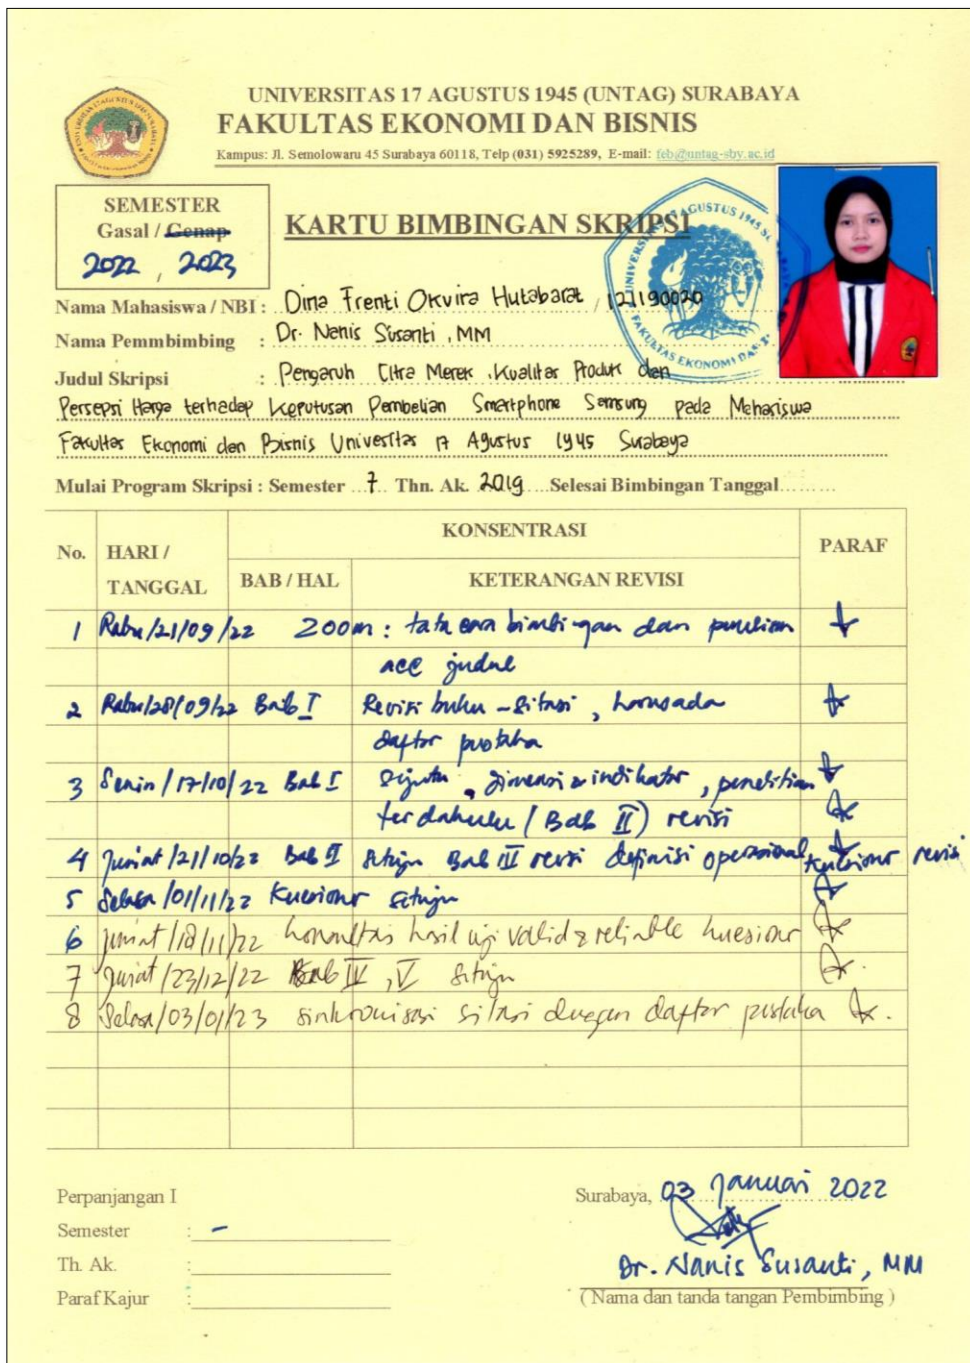 UNIVERSITAS 17 AGUSTUS 1945 (UNTAG) SURABAYA
FAKULTAS EKONOMI DAN BISNIS
Kampus: Jl. Semolowaru 45 Surabaya 60118, Telp (031) 5925289, E-mail: feb@untag-sby.ac.id
SEMESTER
Gasal / Genap
2022 , 2023
KARTU BIMBINGAN SKRIPSI
Nama Mahasiswa / NBI : Dina Frenti Okvira Hutabarat / 121190020
Nama Pemmbimbing : Dr. Nanis Susanti , MM
Judul Skripsi : Pengaruh Citra Merek , Kualitas Produk dan
Persepsi Harga terhadap Keputusan Pembelian Smartphone Samsung pada Mahasiswa
Fakultas Ekonomi dan Bisnis Universitas 17 Agustus 1945 Surabaya
Mulai Program Skripsi : Semester 7 Thn. Ak. 2019 Selesai Bimbingan Tanggal
No. HARI / TANGGAL KONSENTRASI PARAF
BAB / HAL KETERANGAN REVISI
1 Rabu/21/09/22 zoom : tata cara bimbingan dan
acc judul
2 Rabu/28/09/22 Bab I Revisi buku - sitasi , harus ada
daftar pustaka
3 Senin/17/10/22 Bab I setuju , dimensi & indikator , penelitian
terdahulu (Bab II) revisi
4 Jum'at/21/10/22 Bab II setuju Bab III revisi definisi operasional kuesioner revisi
5 Selasa/01/11/22 Kuesioner setuju
6 Jum'at/18/11/22 konsultasi hasil uji valid & reliable kuesioner
7 Jum'at/23/12/22 Bab IV , V setuju
8 Selasa/03/01/23 sinkronisasi sitasi dengan daftar pustaka
Perpanjangan I
Semester : -
Th. Ak. :
Paraf Kajur :
Surabaya, 03 Januari 2022
Dr. Nanis Susanti, MM
( Nama dan tanda tangan Pembimbing )